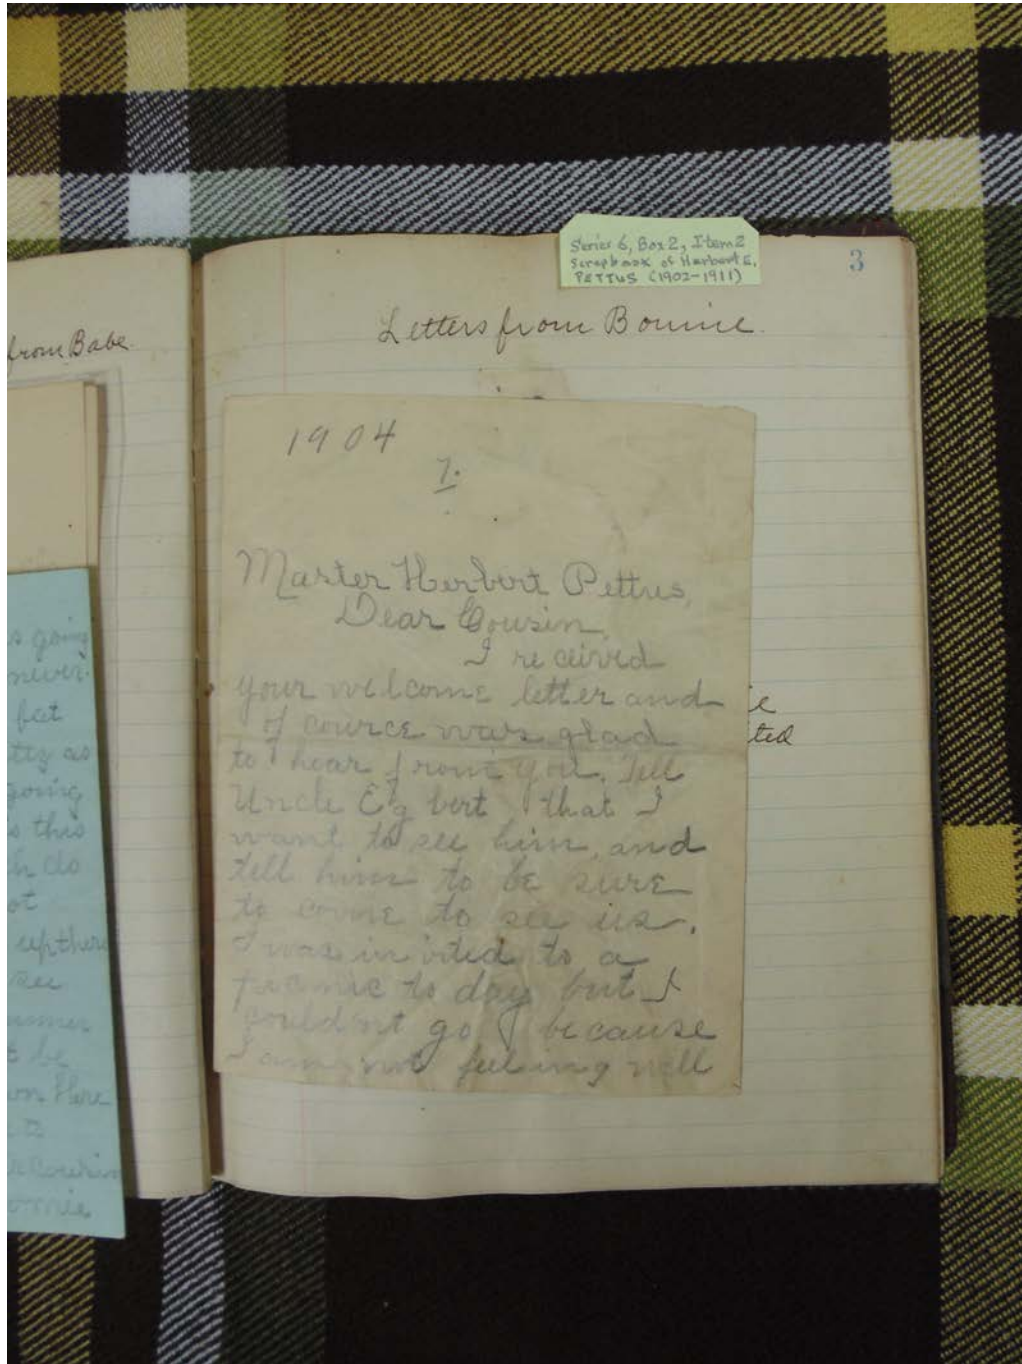 from Babe
s going
never
feet
as
going
s this
h do
ot
up there
see
ummer
t be
on Here
to
r Cousin
onnie
Series 6, Box 2, Item 2
Scrapbook of Herbert E.
PETTUS (1902-1911)
3
Letters from Bonnie.
1904
7.
Master Herbert Pettus,
Dear Cousin,
I received
your welcome letter and
of cource was glad
to hear from you. Tell
Uncle Eg bert that I
want to see him, and
tell him to be sure
to come to see us.
I was in vited to a
picnic to day but I
couldnt go because
I am not feeling well
ie
ted